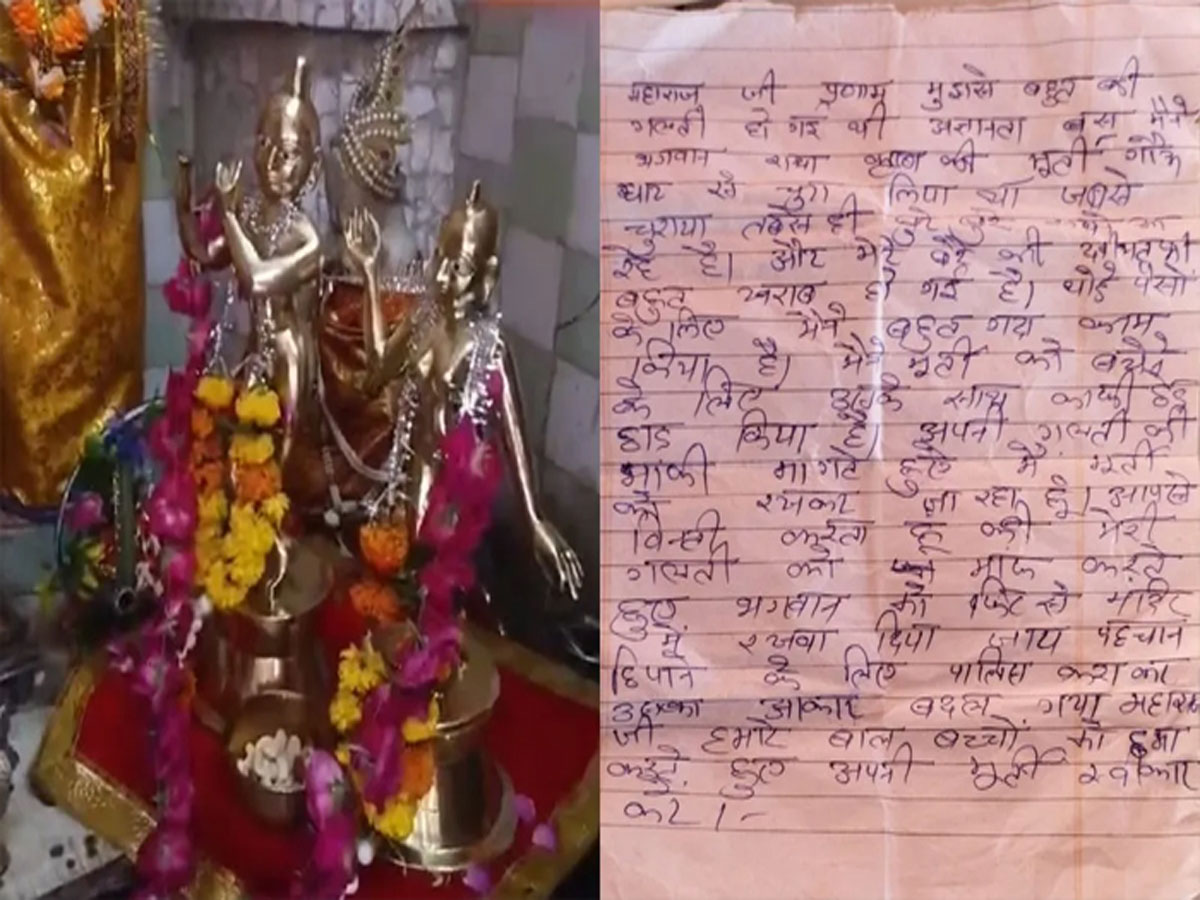 महाराज जी प्रणाम मुझसे बहुत बी
गलती हो गई थी अज्ञानता बस मैने
भगवान राधा कृष्ण की मूर्ती गौऊ
घाट से चुरा लिया था जबसे
चुराया तबसे ही
रहे है। और मेरे बेटे की तबियत भी
बहुत खराब हो गई है। थोडे पैसो
के लिए मैने बहुत गंदा काम
किया है। मैने मूर्ती को बेचने
के लिए उनके साथ काफी छेड़
छाड़ किया है। अपनी गलती की
माफी मागते हुए मै मूर्ती
को रखकर जा रहा हूँ। आपसे
विनती करता हू की मेरी
गलती को माफ करते
हुए भगवान को फिर से मंदिर
में रखवा दिया जाय पहचान
छिपाने के लिए पालिस कराकर
उसका आकार बदल गया महाराज
जी हमारे बाल बच्चो को क्षमा
करते हुए अपनी मूर्ती स्वीकार
करे।-